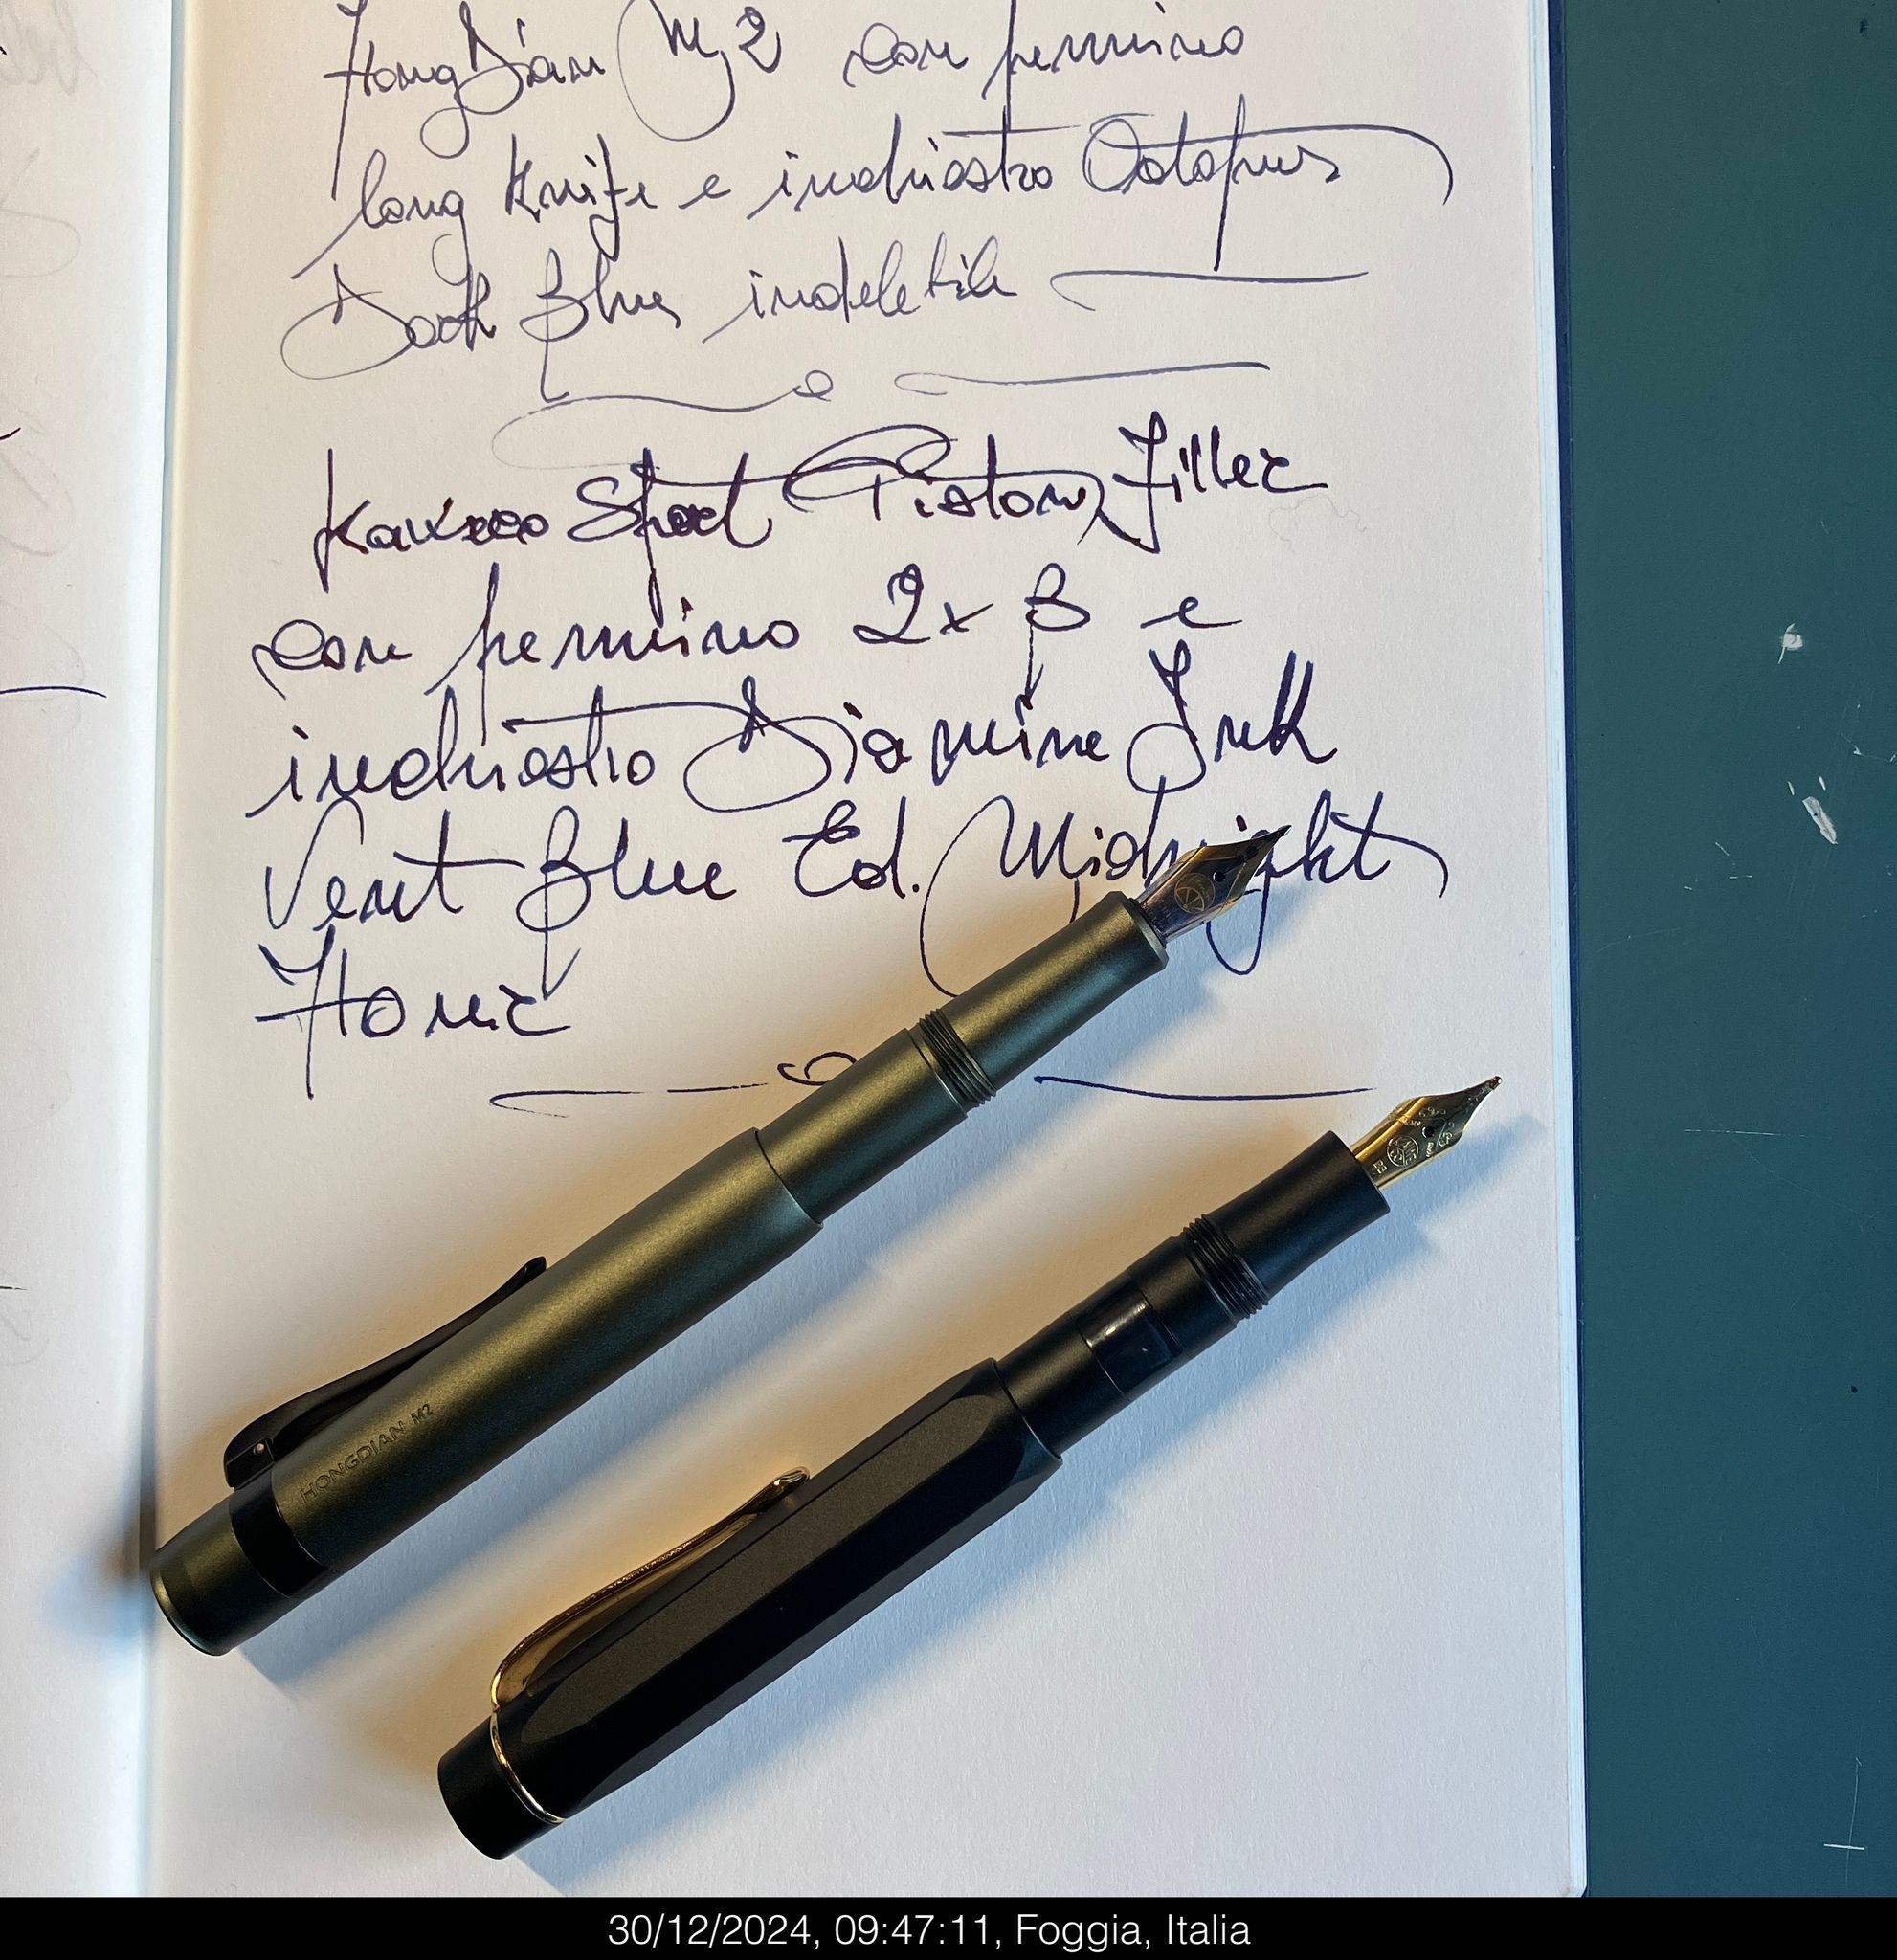 HongDian M2 con pennino
long Knife e inchiostro Octopus
Dark Blue indelebile
Kaweco Sport Piston Filler
con pennino 2x B e
inchiostro Diamine Ink
Vent Blue Ed. Midnight
Honic
HONGDIAN M2
BB
30/12/2024, 09:47:11, Foggia, Italia